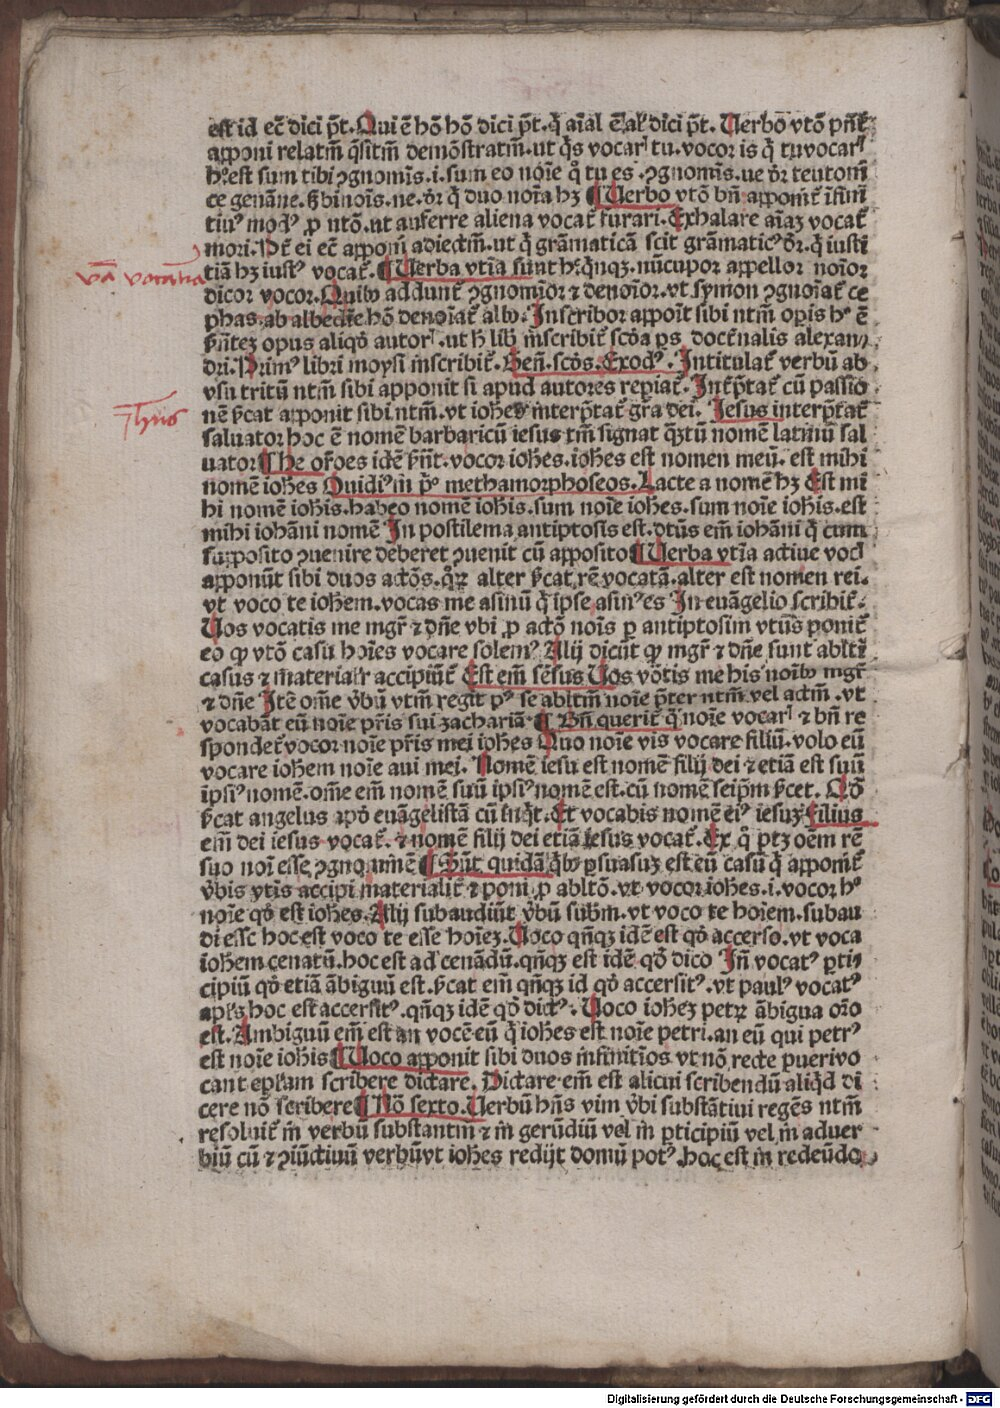 est id ec̄ dici p̄t. Qui ē hō hō dici p̄t. q̄ aīal ē al dici p̄t. Uerbo vtō pn̄t
apponi relatm̄ q̄sitm̄ demōstratm̄. ut q̄s vocar tu. vocor is q̄ tu vocar
est sum tibi ꝯgnomīs. i. sum eo noīe q° tu es. ꝯgnomīs. ne teutoni
ce genāne. binoīs. ne. q̄ duo noīa hꝫ ¶ Uerbo vtō bn̄ apponit̄ īfini
tiuꝰ modꝰ p ntō. ut auferre aliena vocat̄ furari. Exhalare aīaꝫ vocat̄
mori. Pt̄ ei ec̄ apponi adiectm̄. ut q̄ grāmaticā scit grāmaticꝰ dr̄. q̄ iusti
vā vocatīa
tiā hꝫ iustꝰ vocat̄. ¶ Uerba vtīa sunt nūcupor appellor noīor
dicor vocor. Quibꝰ addunt̄ ꝯgnomīor ⁊ denoīor. vt symon ꝯgnoīat̄ ce
phas. ab albedīe hō denoīat̄ albꝰ. Inscribor appoīt sibi ntm̄ opīs ē
opus aliqd autor. ut libꝰ īnscribit̄ scd̄a ps doct̄nalis alexan
dri. Primꝰ libri moysi īnscribit̄. Gen̄. scds. Exodꝰ. Intitulat̄ verbū ab
vsu tritū ntm̄ sibi apponit si apud autores repiat̄. Int̄p̄tat̄ cū passio
Jhūs
nē apponit sibi ntm̄. vt iohes interp̄tat̄ gra dei. Iesus interp̄tat̄
saluator hoc ē nomē barbaricū iesus tm̄ signat nomē latinū sal
uator ¶ He or̄oes idē. vocor iohes. iohes est nomen meū. est mihi
nomē iohes Ouidiꝰ in p° methamorphoseos. Lacte a nomē hꝫ Est mi
hi nomē iohīs. habeo nomē iohīs. sum noīe iohes. sum noīe iohīs. est
mihi iohāni nomē In postilema antiptosis est. dtūs em̄ iohāni q̄ cum
supposito ꝯuenire deberet ꝯuenit cū apposito ¶ Uerba vtīa actiue voc
apponūt sibi duos actōs. alter rē vocatā. alter est nomen rei.
vt voco te iohem. vocas me asinū q̄ ipse asinꝰ es In euāgelio scribit̄.
Uos vocatis me mgr̄ ⁊ dn̄e vbi p actō noīs p antiptosim vtūs ponit̄
eo q vtō casu hoīes vocare solemꝰ Alij dicūt q mgr̄ ⁊ dn̄e sunt abltī
casus ⁊ materialr accipiūt̄ Est em̄ sēsus Uos vōtis me his noībꝰ mgr̄
⁊ dn̄e Itē om̄e v̄bū vtm̄ regit se abltm̄ noīe p̄ter ntm̄ vel actm̄. vt
vocabāt eū noīe pr̄is sui zachariā. ¶ Bn̄ querit̄ q̄ noīe vocar ⁊ bn̄ re
spondet̄ vocor noīe pr̄is mei iohes Quo noīe vis vocare filiū. volo eū
vocare iohem noīe aui mei. Nomē iesu est nomē filij dei ⁊ etiā est suū
ipsiꝰ nomē. om̄e em̄ nomē suū ipsiꝰ nomē est. cū nomē seipm̄. Qd̄
angelus apd euāgelistā cū. Et vocabis nomē eiꝰ iesuꝫ Filius
em̄ dei iesus vocat̄. ⁊ nomē filij dei etiā iesus vocat̄. Ex q° ptꝫ oēm rē
suo noī esse ꝯgnomīnē ¶ Sūt quidā psuasuꝫ est eū casū q̄ apponit̄
v̄bis vtīs accipi materialit̄ ⁊ poni p abltō. vt vocor iohes. i. vocor
noīe qd est iohes. Alij subaudiūt v̄bū subm̄. vt voco te hoīem. subau
di esse hoc est voco te esse hoīeꝫ. Uoco qn̄qꝫ idē est qd accerso. vt voca
iohem cenatū. hoc est ad cenādū. qn̄qꝫ est idē qd̄ dico In̄ vocatꝰ pti
cipiū qd etiā ābiguū est. em̄ qn̄qꝫ id qd accersitꝰ. vt paulꝰ vocatꝰ
apls hoc est accersitꝰ. qn̄qꝫ idē qd̄ dictꝰ. Uoco iohēꝫ petrū ābigua or̄o
est. Ambiguū em̄ est an vocē eū q̄ iohes est noīe petri. an eū qui petrꝰ
est noīe iohis ¶ Uoco apponit sibi duos infinitīos vt nō recte pueri vo
cant eplam scribere dictare. Dictare em̄ est alicui scribendū aliqd di
cere nō scribere ¶ Nō sexto. Uerbū hn̄s vim v̄bi substātiui regēs ntm̄
resoluit̄ in verbū substantm̄ ⁊ in gerūdiū vel in pticipiū vel in aduer
biū cū ⁊ ꝯiūctiuū verbū vt iohes redijt domū potꝰ. hoc est in redeūdo
Digitalisierung gefördert durch die Deutsche Forschungsgemeinschaft - DFG